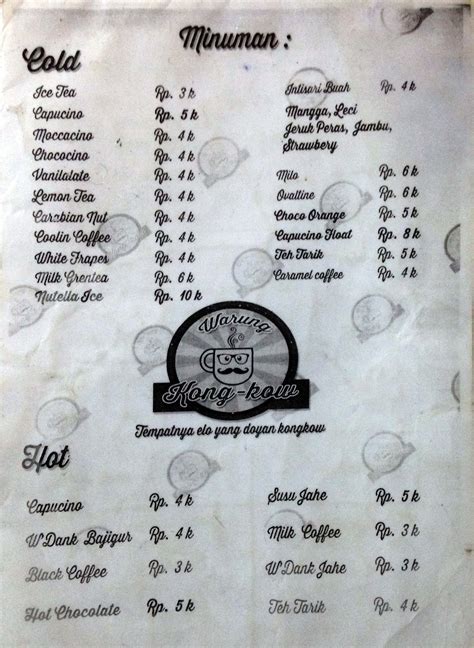 Minuman :
Cold
Ice Tea Rp. 3 k
Capucino Rp. 5 k
Moccacino Rp. 4 k
Chococino Rp. 4 k
Vanilalate Rp. 4 k
Lemon Tea Rp. 4 k
Carabian Nut Rp. 4 k
Coolin Coffee Rp. 4 k
White Frapes Rp. 4 k
Milk Grentea Rp. 6 k
Nutella Ice Rp. 10 k
Intisari Buah Rp. 4 k
Mangga, Leci
Jeruk Peras, Jambu,
Strawbery
Milo Rp. 6 k
Ovaltine Rp. 6 k
Choco Orange Rp. 5 k
Capucino Float Rp. 8 k
Teh Tarik Rp. 5 k
Caramel coffee Rp. 4 k
Warung
Kong-kow
Tempatnya elo yang doyan kongkow
Hot
Capucino Rp. 4 k
W'Dank Bajigur Rp. 4 k
Black Coffee Rp. 3 k
Hot Chocolate Rp. 5 k
Susu Jahe Rp. 5 k
Milk Coffee Rp. 3 k
W'Dank Jahe Rp. 3 k
Teh Tarik Rp. 4 k